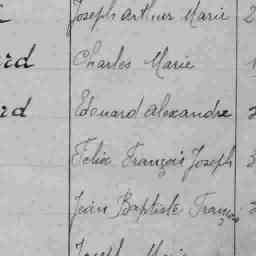 Joseph Arthur Marie 2
rd Charles Marie
rd Edouard Alexandre 2
Felix François Joseph
Jean Baptiste François
Joseph Marie